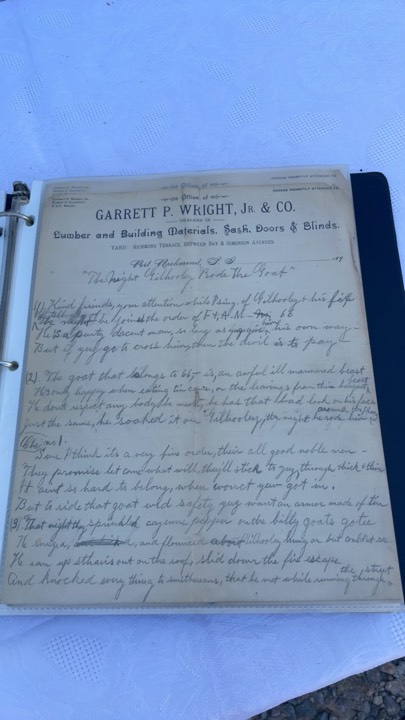 ORDERS PROMPTLY ATTENDED TO.
Office of
GARRETT P. WRIGHT, JR. & CO.
DEALERS IN
Lumber and Building Materials, Sash, Doors & Blinds.
YARD: RICHMOND TERRACE, BETWEEN BAY & SIMONSON AVENUES.
Port Richmond, S. I. 189
"The Night Gilhooley Rode The Goat"
(1) Kind friends, your attention while I sing, of Gilhooley & his
the night he joined the order of F. & A. M. 66
He is a party decent man, so long as you his own way
But if you go to cross him, then the devil is to pay
(2) The goat that belongs to 66 is, an awful ill mannered beast
He's only happy when eating tin cans, or the leavings from this
He don't respect any body, he has that load look on his face
Just the same, he soaked it on Gilhooley, the night he rode him around the place
Chorus 1.
Sure I think its a very fine order, their all good noble men
They promise let come what will, they'll stick to you through thick & thin
It aint so hard to belong, when wonct yew got in.
But to ride that goat wid safety you want an armor made of tin
(3) That night they sprinkled cayenne pepper on the billy goats
He and flounced Gilhooley but
He ran up stairs out on the roof, slid down the fire escape
And knocked every thing to smithereens, that he met while running through the street